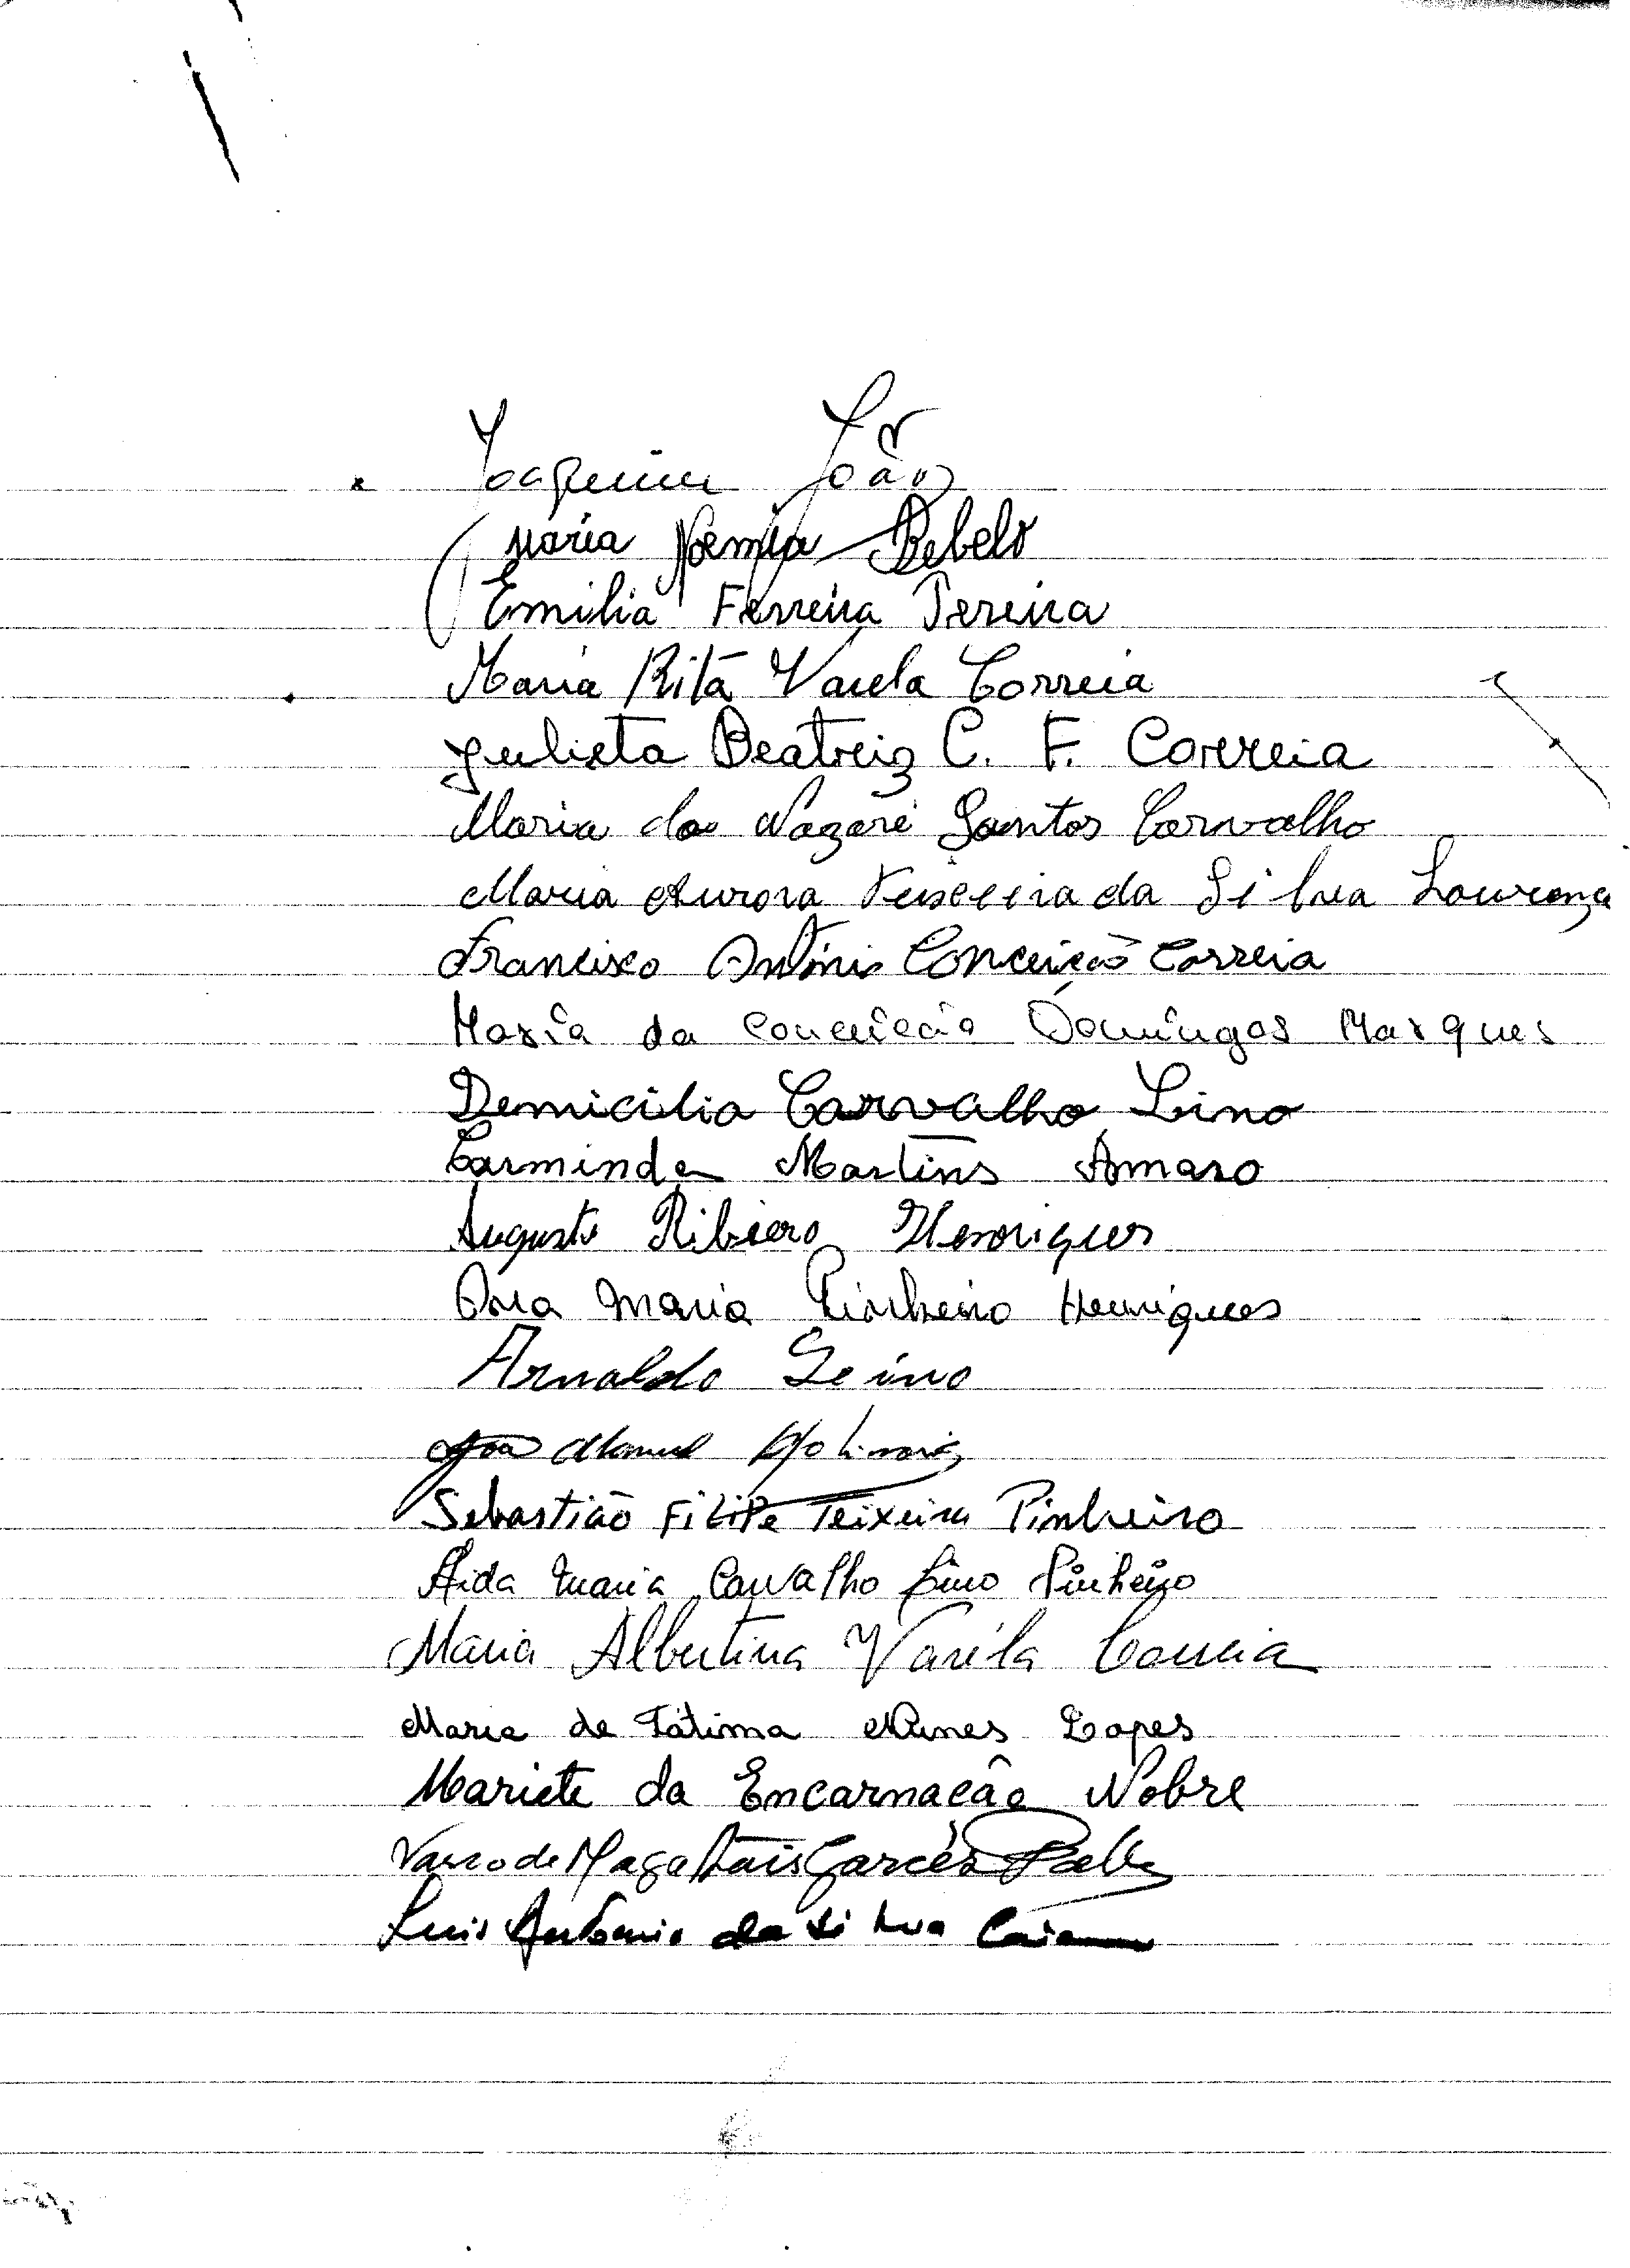 Joaquim João
Maria Noémia Rebelo
Emilia Ferreira Pereira
Maria Rita Varela Correia
Julieta Beatriz C. F. Correia
Maria da Nazaré Santos Carvalho
Maria Aurora Teixeira da Silva Lourenço
Francisco António Conceição Correia
Maria da Conceição Domingos Marques
Demicilia Carvalho Lino
Carminda Martins Amaro
Augusto Ribeiro Henriques
Ana Maria Pinheiro Henriques
Arnaldo
Manuel
Sebastião Filipe Teixeira Pinheiro
Aida Maria Carvalho Lino Pinheiro
Maria Albertina Varéla Correia
Maria de Fátima Nunes Lopes
Mariete da Encarnação Nobre
Vasco de Magalhais Garcês
Luis António da Silva